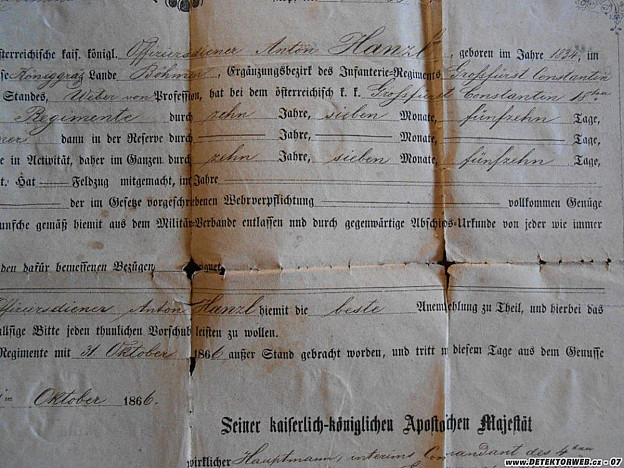 österreichische kais. königl. Offiziersdiener Anton Hanzl, geboren im Jahre 1834, im
Königgratz Lande Böhmen, Ergänzungsbezirk des Infanterie-Regiments Großfürst Constantin
Standes, Weber von Profession, hat bei dem österreichisch k. k. Großfürst Constantin 18ten
Regimente durch zehn Jahre, sieben Monate, fünfzehn Tage,
dann in der Reserve durch Jahre, Monate, Tage,
e in Activität, daher im Ganzen durch zehn Jahre, sieben Monate, fünfzehn Tage,
t. Hat Feldzug mitgemacht, im Jahre
der im Gesetze vorgeschriebenen Wehrverpflichtung vollkommen Genüge
unsche gemäß hiemit aus dem Militär-Verbande entlassen und durch gegenwärtige Abschieds-Urkunde von jeder wie immer
den dafür bemessenen Bezügen
Offiziersdiener Anton Hanzl hiemit die beste Anempfehlung zu Theil, und hierbei das
allfige Bitte jeden thunlichen Vorschub leisten zu wollen.
Regimente mit 31 Oktober 1866 außer Stand gebracht worden, und tritt mit diesem Tage aus dem Genusse
Oktober 1866.
Seiner kaiserlich-königlichen Apostolischen Majestät
wirklicher Hauptmann, interims Comandant des 4ten
www.DETEKTORWEB.cz - 07